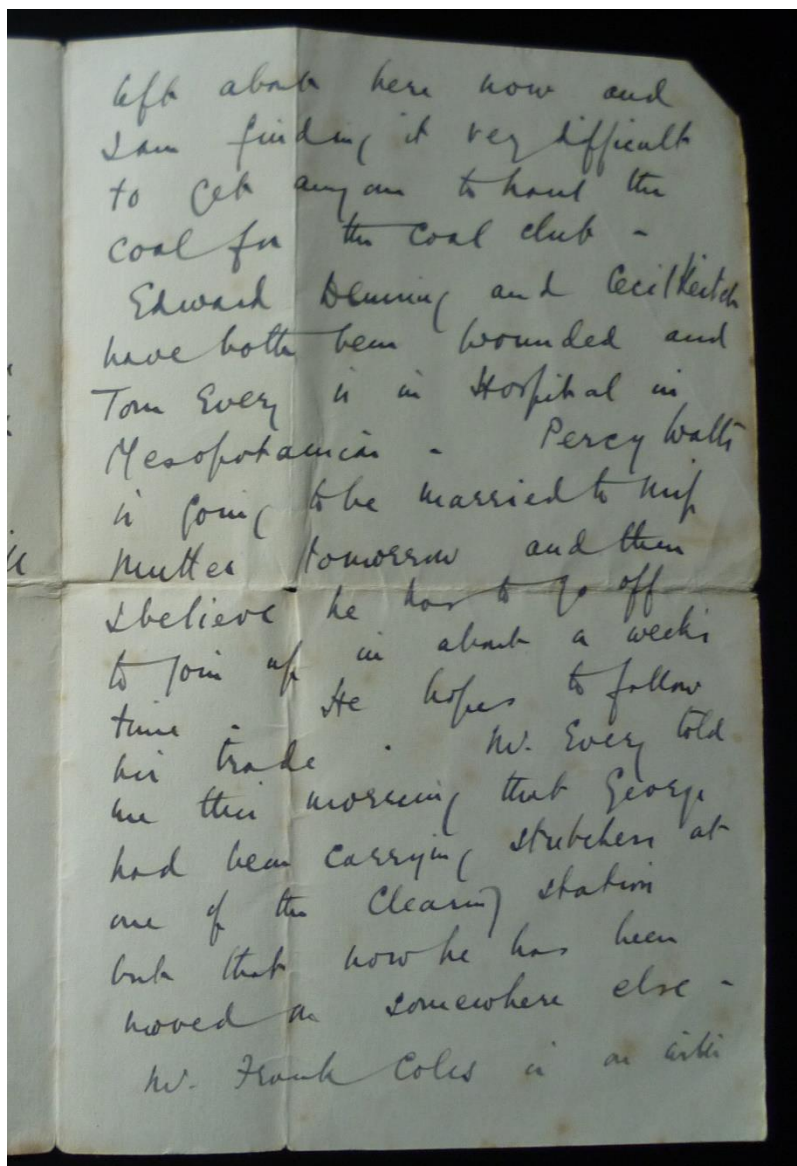 left about here now and
I am finding it very difficult
to get anyone to haul the
coal for the coal club -
Edward Denning and Cecil
have both been wounded and
Tom Every is in Hospital in
Mesopotamia - Percy Watts
is going to be married to Miss
Mutter tomorrow and then
I believe he has to go off
to join up in about a weeks
time. He hopes to follow
his trade. Mr. Every told
me this morning that George
had been carrying stretchers at
one of the Clearing station
but that now he has been
moved on somewhere else -
Mr. Frank Coles is on